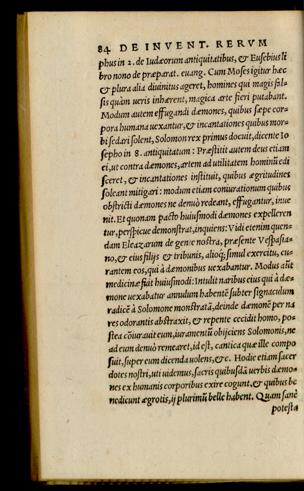 84 DE INVENT. RERVM
phus in 2. de Iudæorum antiquitatibus, & Eusebius li
bro nono de præparat. euang. Cum Moses igitur hæc
& plura alia diuinitus ageret, homines qui magis fal-
sis quàm ueris inhærent, magica arte fieri putabant.
Modum autem effugandi dæmones, quibus sæpe cor-
pora humana uexantur, & incantationes quibus mor-
bi sedari solent, Solomon rex primus docuit, dicente Io
sepho in 8. antiquitatum: Præstitit autem deus etiam
ei, ut contra dæmones, artem ad utilitatem hominũ edi
sceret, & incantationes instituit, quibus ægritudines
soleant mitigari: modum etiam coniurationum quibus
obstricti dæmones ne denuò redeant, effugantur, inue
nit. Et quonam pacto huiusmodi dæmones expelleren
tur, perspicuè demonstrat, inquiens: Vidi etenim quen-
dam Eleazarum de gente nostra, præsente Vespasia-
no, & eius filijs & tribunis, alioq; simul exercitu, cu-
rantem eos, qui à dæmonibus uexabantur. Modus aũt
medicinæ fuit huiusmodi: Intulit naribus eius qui à dæ-
mone uexabatur annulum habentẽ subter signaculum
radicẽ à Solomone monstratã, deinde dæmonẽ per na
res odorantis abstraxit, & repente cecidit homo, po-
stea cõiurauit eum, iuramentũ obijciens Solomonis, ne
ad eum denuò remearet, id est, cantica quæ ille compo
suit, super eum dicenda uolens, &c. Hodie etiam sacer
dotes nostri, uti uidemus, sacris quibusdã uerbis dæmo-
nes ex humanis corporibus exire cogunt, & quibus be
nedicunt ægrotis, ij plurimũ belle habent. Quam sanè
potesta